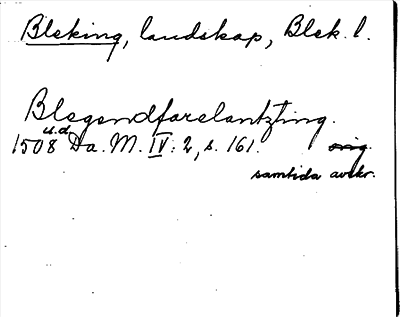 Bleking, landskap, Blek. l.
Blegendfarelantzting.
u.d.
1508 Da. M. IV: 2, s. 161. orig.
samtida avskr.